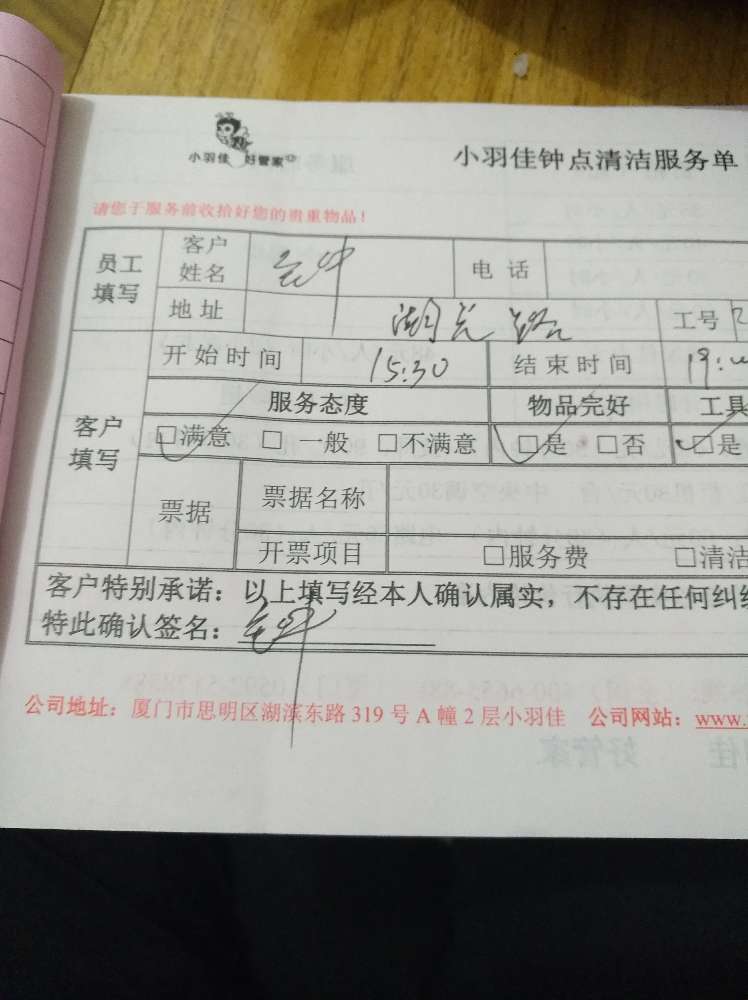 小羽佳 好管家
小羽佳钟点清洁服务单
请您于服务前收拾好您的贵重物品!
员工填写 客户姓名 电话
地址 湖光路 工号
客户填写 开始时间 15:30 结束时间 19:
服务态度 物品完好 工具
□满意 □一般 □不满意 □是 □否 □是
票据 票据名称
开票项目 □服务费 □清洁
客户特别承诺:以上填写经本人确认属实,不存在任何纠
特此确认签名:
公司地址:厦门市思明区湖滨东路319号A幢2层小羽佳 公司网站:www.